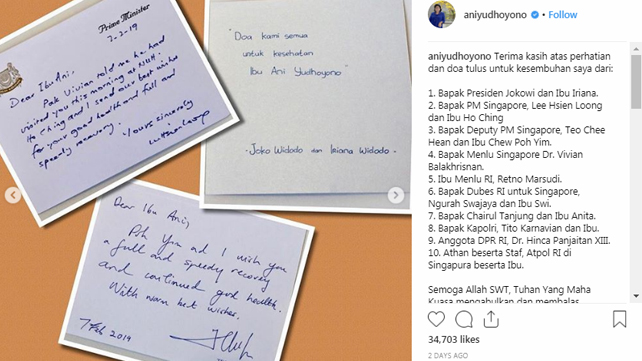 Prime Minister
7-2-19
Dear Ibu Ani,
Pak Vivian told me he had
visited you this morning at NUH.
Ho Ching and I send our best wishes
for your good health and full and
speedy recovery.
Yours sincerely
"Doa kami semua
untuk kesehatan
Ibu Ani Yudhoyono"
- Joko Widodo dan Iriana Widodo -
Dear Ibu Ani,
Poh Yim and I wish you
a full and speedy recovery
and continued good health.
With warm best wishes.
7 Feb 2019
aniyudhoyono • Follow
aniyudhoyono Terima kasih atas perhatian
dan doa tulus untuk kesembuhan saya dari:
1. Bapak Presiden Jokowi dan Ibu Iriana.
2. Bapak PM Singapore, Lee Hsien Loong
dan Ibu Ho Ching
3. Bapak Deputy PM Singapore, Teo Chee
Hean dan Ibu Chew Poh Yim.
4. Bapak Menlu Singapore Dr. Vivian
Balakhrisnan.
5. Ibu Menlu RI, Retno Marsudi.
6. Bapak Dubes RI untuk Singapore,
Ngurah Swajaya dan Ibu Swi.
7. Bapak Chairul Tanjung dan Ibu Anita.
8. Bapak Kapolri, Tito Karnavian dan Ibu.
9. Anggota DPR RI, Dr. Hinca Panjaitan XIII.
10. Athan beserta Staf, Atpol RI di
Singapura beserta Ibu.
Semoga Allah SWT, Tuhan Yang Maha
Kuasa mengabulkan dan membalas
34,703 likes
2 DAYS AGO